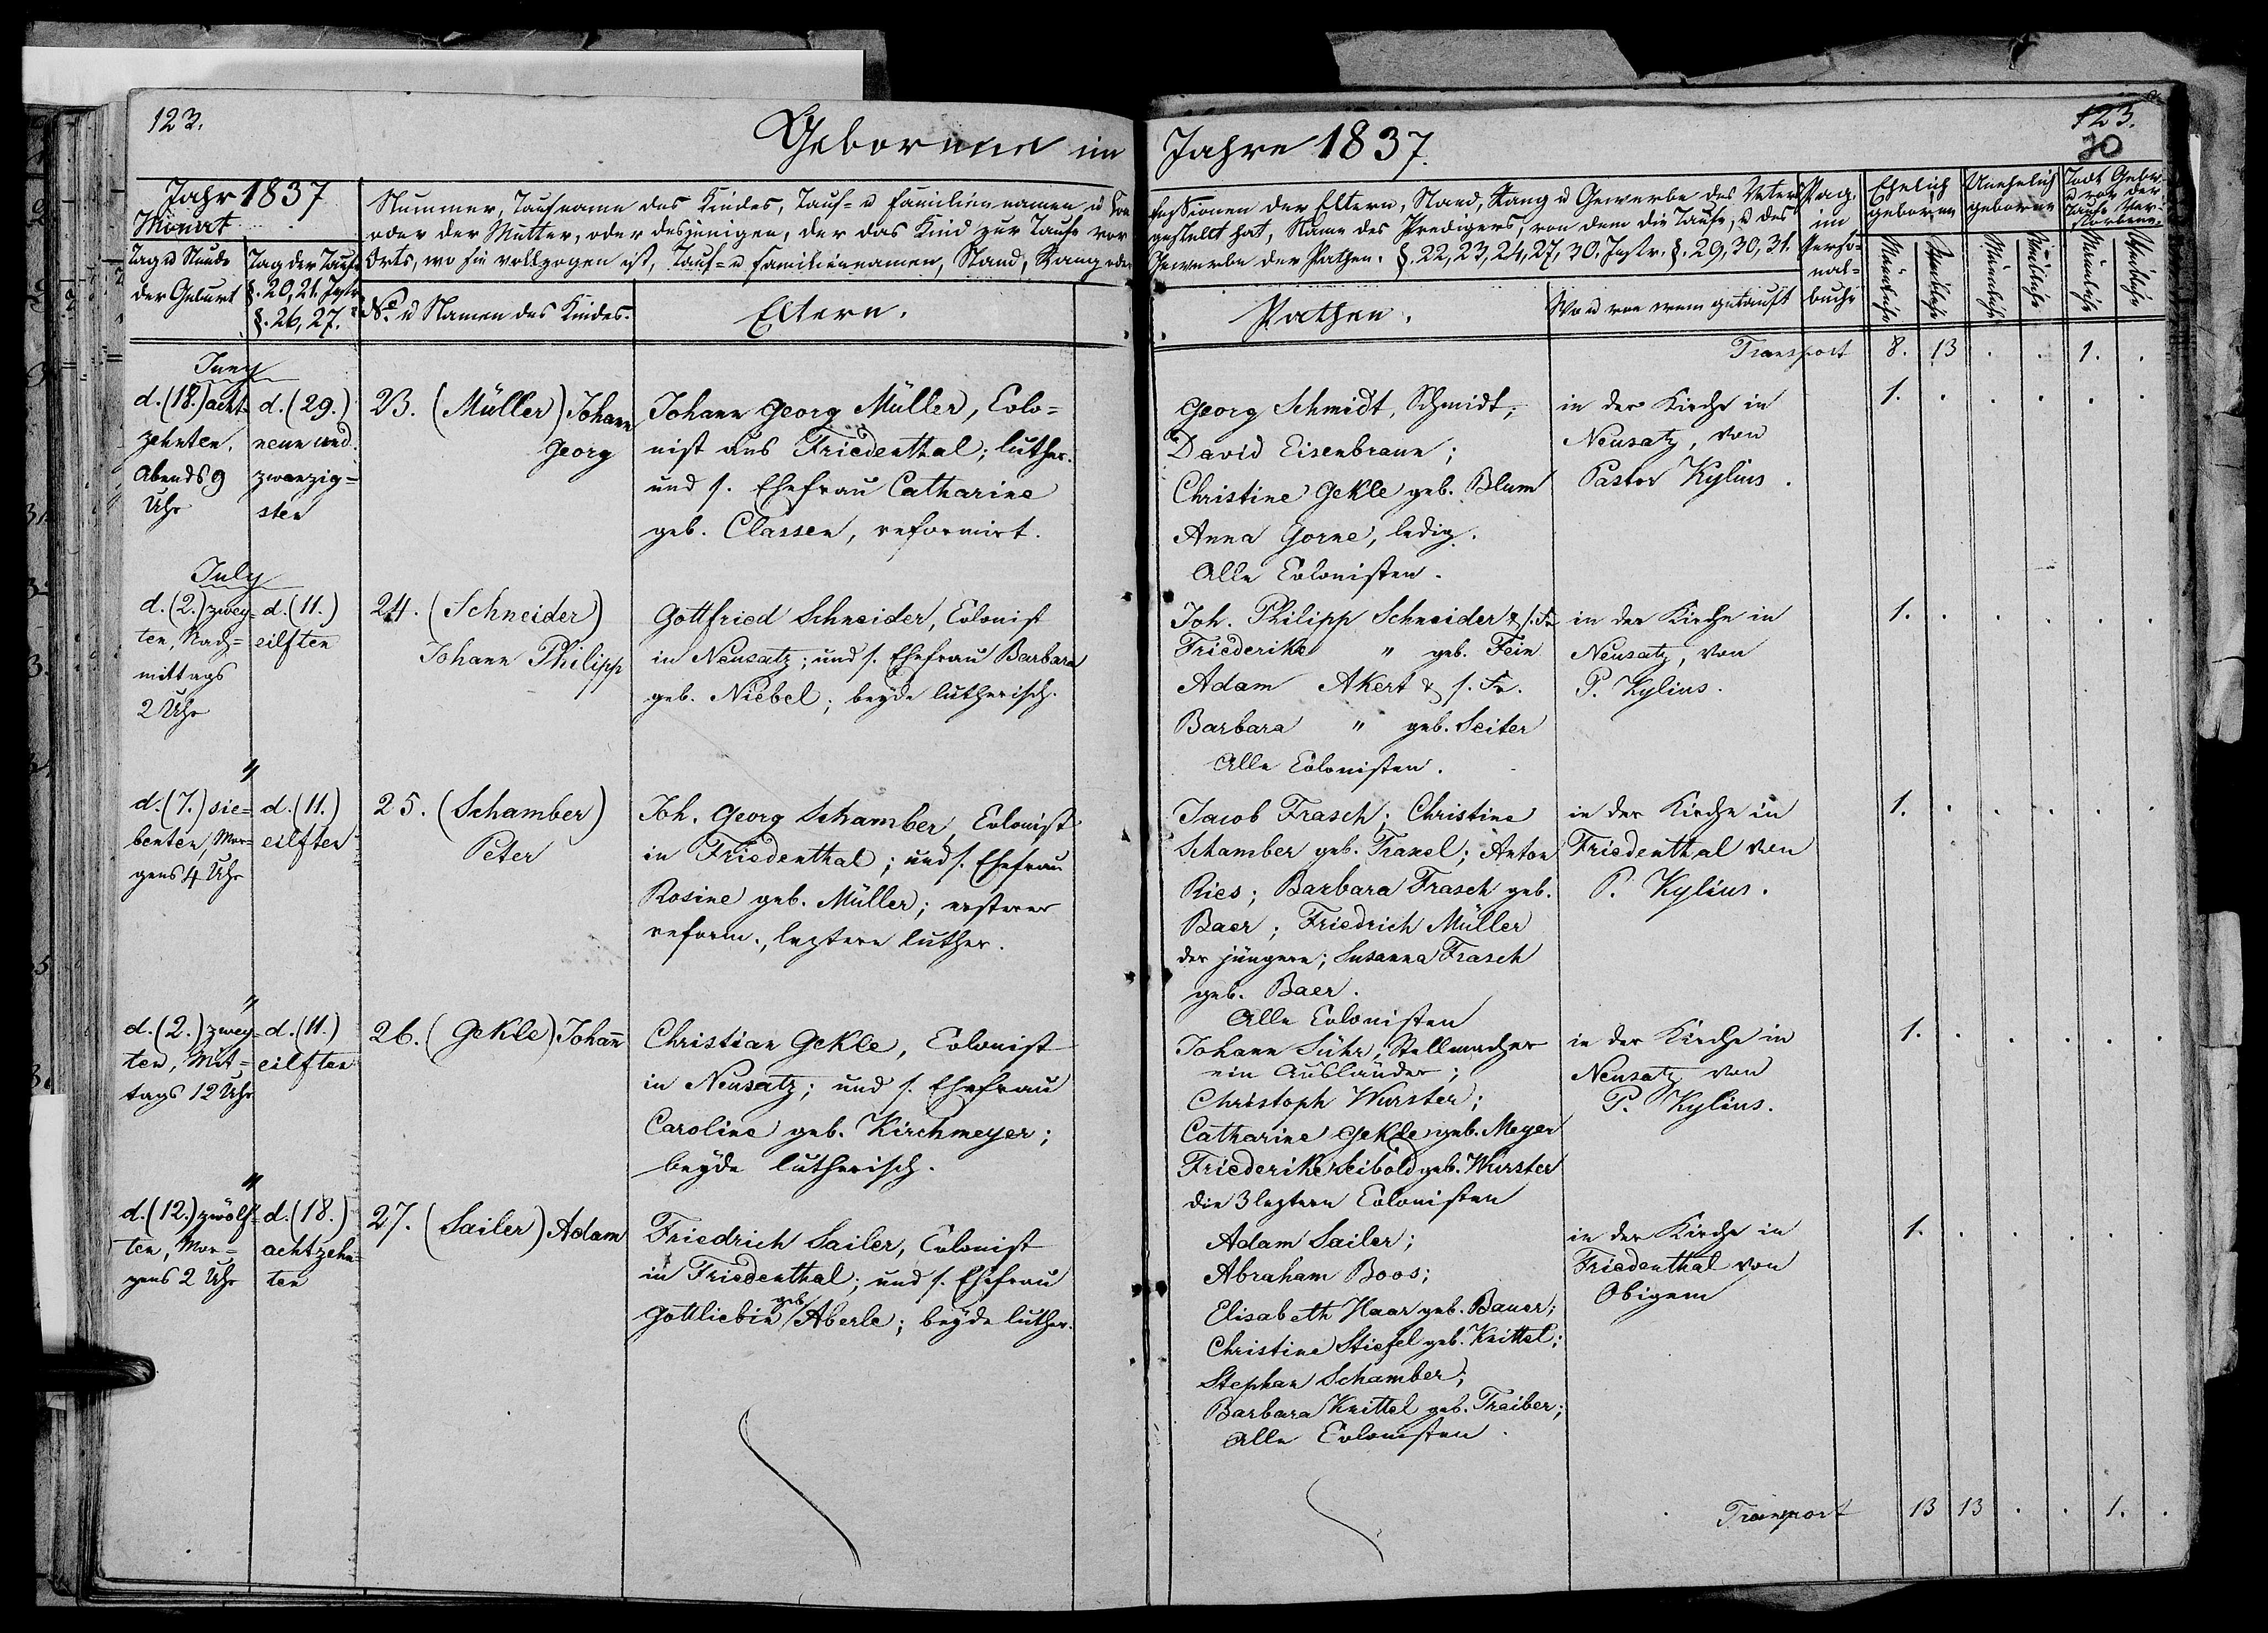 123.
123.
30
Geborene im Jahre 1837.
Jahr 1837
Monat
Tag u Stunde
der Geburt
Tag der Taufe
§. 20, 21. Instr.
§. 26, 27.
Nummer, Taufname des Kindes, Tauf- u Familiennamen u Confessionen der Eltern, Stand, Rang u Gewerbe des Vaters
oder der Mutter, oder desjenigen, der das Kind zur Taufe vorgestellt hat, Name des Predigers, von dem die Taufe, u des
Orts, wo sie vollzogen ist, Tauf- u Familiennamen, Stand, Rang oder Gewerbe der Pathen. §. 22, 23, 24, 27, 30. Instr. §. 29, 30, 31.
No. u Namen des Kindes.
Eltern.
Pathen.
Wo u von wem getauft
Pag.
im
Perso=
nal=
buche
Ehelich
geboren
Unehelich
geboren
Todt Gebor.
u vor der
Taufe Ver-
storbene.
Männliche
Weibliche
Männliche
Weibliche
Männliche
Weibliche
Transport 8. 13 . . 1. .
Juny
d. (18.) acht-
zehnten,
Abends 9
Uhr
d. (29.)
neun und
zwanzig=
sten
23. (Müller) Johann
Georg
Johann Georg Müller, Colo=
nist aus Friedenthal; luther.
und s. Ehefrau Catharine
geb. Classen, reformirt.
Georg Schmidt, Schmidt,
David Eisenbraun;
Christine Gekle geb. Blum
Anna Gorne, ledig.
Alle Colonisten.
in der Kirche in
Neusatz, von
Pastor Kylius.
1. . . . . .
July
d. (2.) zwey-
ten, Nach=
mittags
2 Uhr
d. (11.)
eilften
24. (Schneider)
Johann Philipp
Gottfried Schneider, Colonist
in Neusatz; und s. Ehefrau Barbara
geb. Niebel; beyde lutherisch.
Joh. Philipp Schneider & s. Fr.
Friederike " geb. Fein
Adam Akert & s. Fr.
Barbara " geb. Seiter
Alle Colonisten.
in der Kirche in
Neusatz, von
P. Kylius.
1. . . . . .
"
d. (7.) sie=
benten, Mor=
gens 4 Uhr
d. (11.)
eilften
25. (Schamber)
Peter
Joh. Georg Schamber, Colonist
in Friedenthal; und s. Ehefrau
Rosine geb. Müller; ersterer
reform., leztere luther.
Jacob Frasch; Christine
Schamber geb. Traxel; Anton
Ries; Barbara Frasch geb.
Baer; Friedrich Müller
der jüngere; Susanna Frasch
geb. Baer.
Alle Colonisten
in der Kirche in
Friedenthal von
P. Kylius.
1. . . . . .
"
d. (2.) zwey-
ten, Mit=
tags 12 Uhr
d. (11.)
eilften
26. (Gekle) Johan̄
Christian Gekle, Colonist
in Neusatz; und s. Ehefrau
Caroline geb. Kirchmeyer;
beyde lutherisch.
Johann Sühr, Stellmacher
ein Ausländer;
Christoph Wurster;
Catharine Gekle geb. Meyer
Friederike Seibold geb. Wurster
die 3 leztern Colonisten
in der Kirche in
Neusatz von
P. Kylius.
1. . . . . .
"
d. (12.) zwölf-
ten, Mor=
gens 2 Uhr
d. (18.)
achtzehn-
ten
27. (Sailer) Adam
Friedrich Sailer, Colonist
in Friedenthal; und s. Ehefrau
Gottliebin geb. Aberle; beyde luther.
Adam Sailer;
Abraham Boos;
Elisabeth Haar geb. Bauer;
Christine Stiefel geb. Knittel;
Stephan Schamber;
Barbara Knittel geb. Treiber;
Alle Colonisten.
in der Kirche in
Friedenthal von
Obigem
1. . . . . .
Transport 13 13 . . 1. .